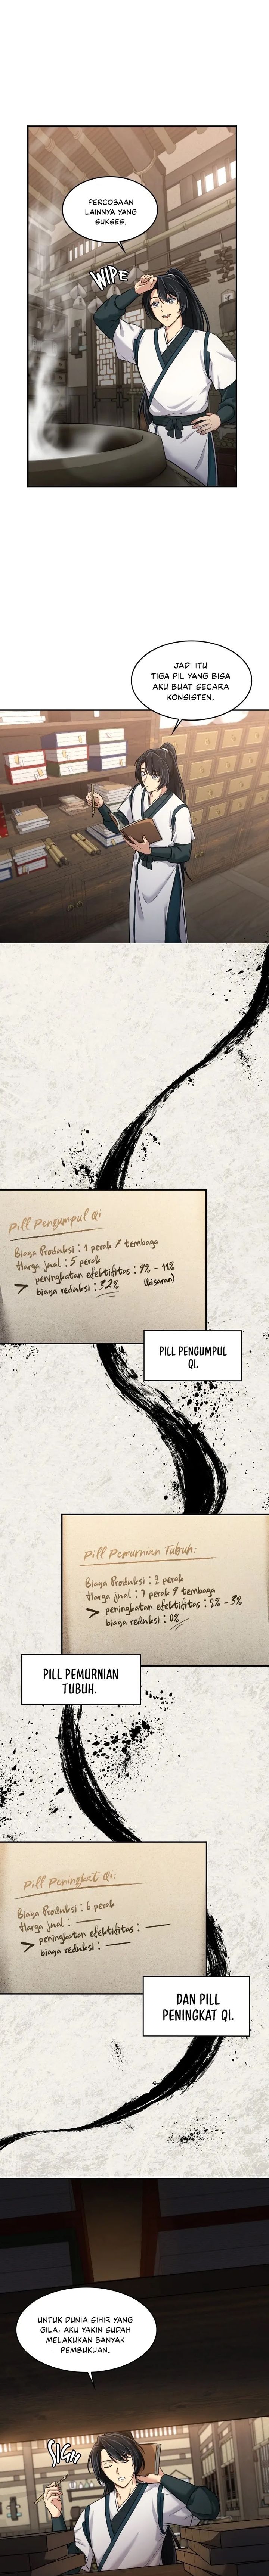 PERCOBAAN
LAINNYA YANG
SUKSES.
WIPE
JADI ITU
TIGA PIL YANG BISA
AKU BUAT SECARA
KONSISTEN.
Pill Pengumpul Qi
Biaya Produksi : 1 perak 7 tembaga
Harga jual : 5 perak
> peningkatan efektifitas : 9% - 11%
(bisaran)
biaya reduksi : 32%
PILL PENGUMPUL
QI.
Pill Pemurnian Tubuh:
Biaya Produksi : 2 perak
Harga jual : 7 perak 4 tembaga
> peningkatan efektifitas : 2% - 3%
biaya reduksi : 0%
PILL PEMURNIAN
TUBUH.
Pill Peningkat Qi:
Biaya Produksi : 6 perak
Harga jual : —
> peningkatan efektifitas : —
biaya reduksi : —
DAN PILL
PENINGKAT QI.
UNTUK DUNIA SIHIR YANG
GILA, AKU YAKIN SUDAH
MELAKUKAN BANYAK
PEMBUKUAN.
SIGH